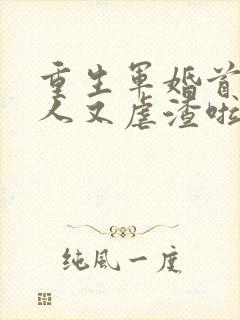 重生军婚首
人又虐渣啦
纯风一度